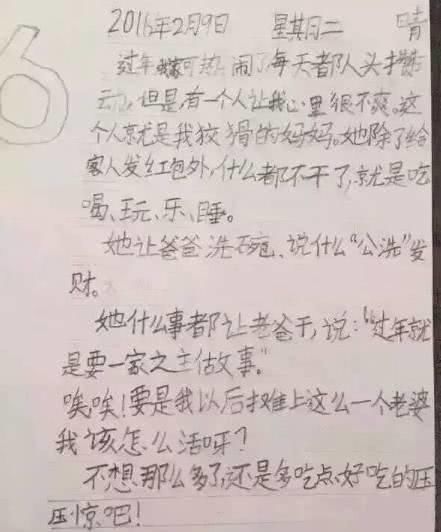 6
2016年2月9日 星其日二 日青
过年我家可热闹了,每天都人头攒
动,但是有一个人让我心里很不爽。这
个人就是我狡猾的妈妈。她除了给
客人发红包外,什么都不干了,就是吃
喝、玩、乐、睡。
她让爸爸洗碗、说什么“公洗”发
财。
她什么事都让老爸干,说:“过年就
是要一家之主做事。”
唉唉!要是我以后摊上这么一个老婆
我该怎么活呀?
不想那么多了,还是多吃点好吃的压
压惊吧!